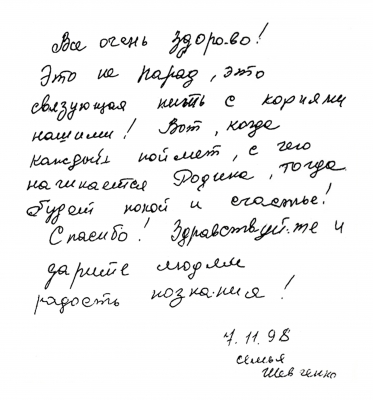 Все очень здорово!
Это не парад, это
связующая нить с корнями
нашими! Вот, когда
каждый поймет, с чего
начинается Родина, тогда
будет покой и счастье!
Спасибо! Здравствуйте и
дарите людям
радость познания!
7.11.98
семья
Шевченко